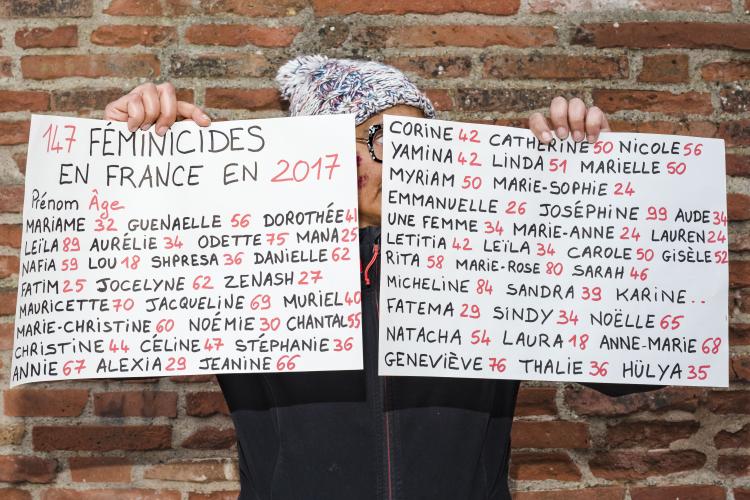 147 FÉMINICIDES
EN FRANCE EN 2017
Prénom Âge
MARIAME 32 GUENAELLE 56 DOROTHÉE 41
LEÏLA 89 AURÉLIE 34 ODETTE 75 MANA 25
NAFIA 59 LOU 18 SHPRESA 36 DANIELLE 62
FATIM 25 JOCELYNE 62 ZENASH 27
MAURICETTE 70 JACQUELINE 69 MURIEL 40
MARIE-CHRISTINE 60 NOÉMIE 30 CHANTAL 55
CHRISTINE 44 CÉLINE 47 STÉPHANIE 36
ANNIE 67 ALEXIA 29 JEANINE 66
CORINE 42 CATHERINE 50 NICOLE 56
YAMINA 42 LINDA 51 MARIELLE 50
MYRIAM 50 MARIE-SOPHIE 24
EMMANUELLE 26 JOSÉPHINE 99 AUDE 34
UNE FEMME 34 MARIE-ANNE 24 LAUREN 24
LETITIA 42 LEÏLA 34 CAROLE 50 GISÈLE 52
RITA 58 MARIE-ROSE 80 SARAH 46
MICHELINE 84 SANDRA 39 KARINE ..
FATEMA 29 SINDY 34 NOËLLE 65
NATACHA 54 LAURA 18 ANNE-MARIE 68
GENEVIÈVE 76 THALIE 36 HÜLYA 35